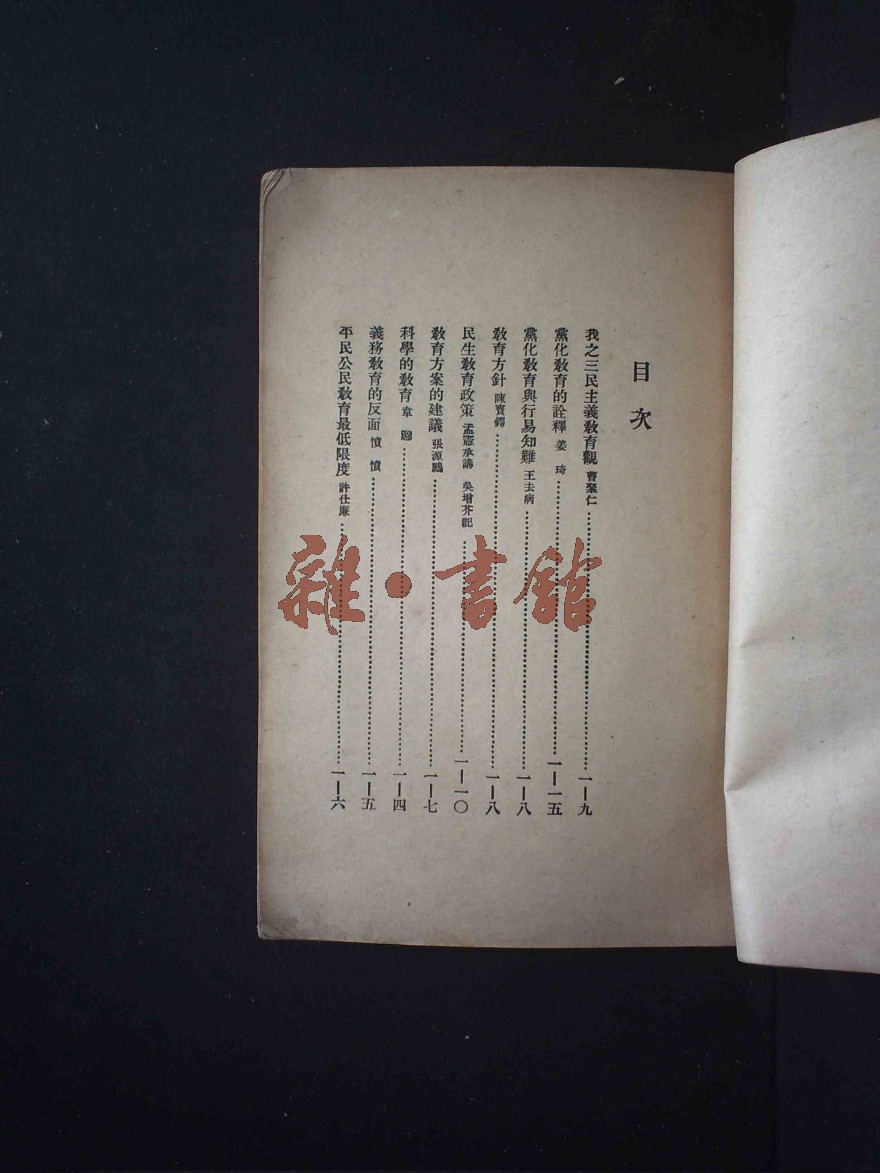 目次
我之三民主義教育觀 曹聚仁 一—九
黨化教育的詮釋 姜琦 一—一五
黨化教育與行易知難 王去病 一—八
教育方針 陳寶鍔 一—八
民生教育政策 孟憲承講 吳增芥記 一—一〇
教育方案的建議 張源 一—七
科學的教育 韋愨 一—四
義務教育的反面 憤憤 一—五
平民公民教育最低限度 許仕廉 一—六
雜·書館